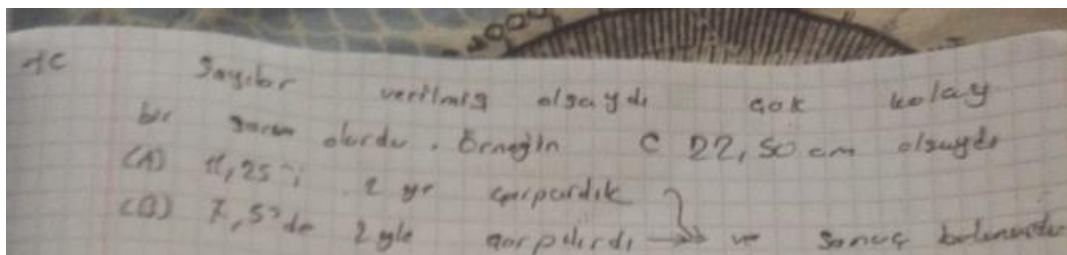 Sayılar verilmiş olsaydı çok kolay
bir soru olurdu. Örneğin C 22,50 cm olsaydı
(A) 11,25'i 2 ye çarpardık
(B) 7,5'de 2 yle çarpılırdı → ve sonuç bulunurdu